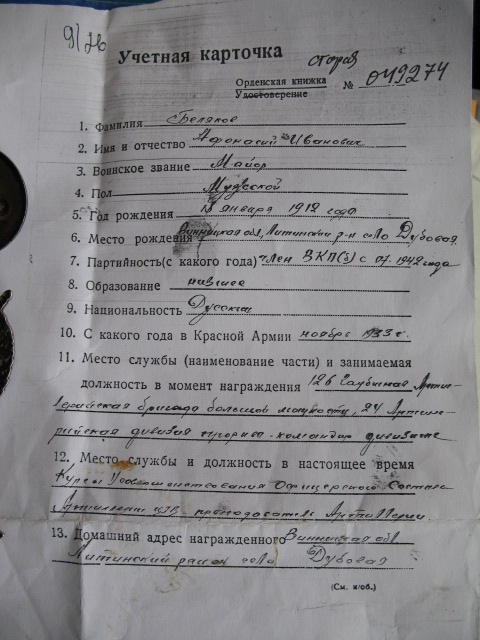 9/7в
Учетная карточка
старая
Орденская книжка
Удостоверение № 049274
1. Фамилия Беляков
2. Имя и отчество Афонасий Иванович
3. Воинское звание Майор
4. Пол Мужской
5. Год рождения 18 января 1912 года
6. Место рождения Винницкая обл, Литинский р-н село Дубовая
7. Партийность(с какого года) член ВКП(б) с 07.1942 года
8. Образование низшее
9. Национальность Русский
10. С какого года в Красной Армии ноябрь 1933 г.
11. Место службы (наименование части) и занимаемая
должность в момент награждения 126 Гаубичная Арти-
лерийская бригада большой мощности, 24 Артиле-
рийская дивизия прорыва - командир дивизиона
12. Место службы и должность в настоящее время
Курсы Усовершенствования Офицерского Состава
Артиллерии преподаватель Артиллерии.
13. Домашний адрес награжденного Винницкая обл
Литинский район село Дубовая
(См. н/об.)